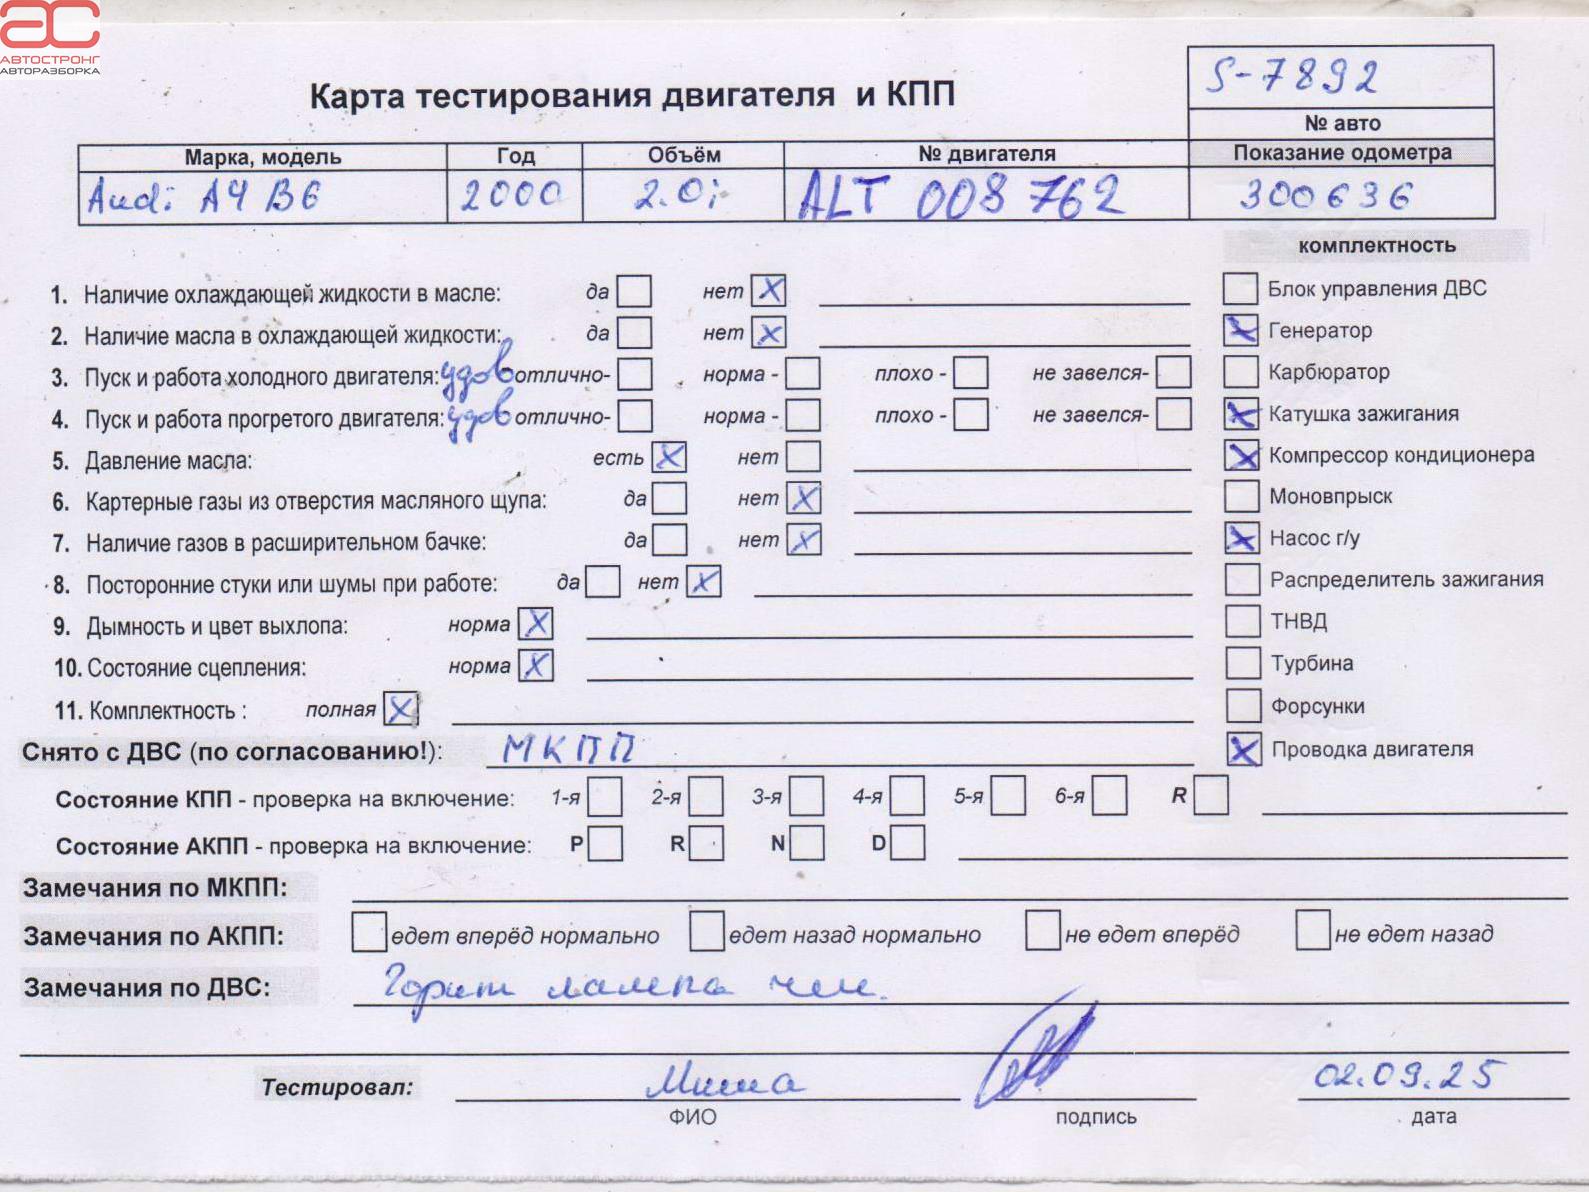 АС
АВТОСТРОНГ
АВТОРАЗБОРКА
S-7892
Карта тестирования двигателя и КПП
№ авто
Марка, модель Год Объём № двигателя Показание одометра
Audi A4 B6 2000 2.0i ALT 008 762 300636
комплектность
1. Наличие охлаждающей жидкости в масле: да нет X
Блок управления ДВС
2. Наличие масла в охлаждающей жидкости: да нет X
Генератор X
3. Пуск и работа холодного двигателя: удов отлично- норма - плохо - не завелся-
Карбюратор
4. Пуск и работа прогретого двигателя: удов отлично- норма - плохо - не завелся-
Катушка зажигания X
5. Давление масла: есть X нет
Компрессор кондиционера X
6. Картерные газы из отверстия масляного щупа: да нет X
Моновпрыск
7. Наличие газов в расширительном бачке: да нет X
Насос г/у X
8. Посторонние стуки или шумы при работе: да нет X
Распределитель зажигания
9. Дымность и цвет выхлопа: норма X
ТНВД
10. Состояние сцепления: норма X
Турбина
11. Комплектность : полная X
Форсунки
Снято с ДВС (по согласованию!): МКПП
Проводка двигателя X
Состояние КПП - проверка на включение: 1-я 2-я 3-я 4-я 5-я 6-я R
Состояние АКПП - проверка на включение: P R N D
Замечания по МКПП:
Замечания по АКПП: едет вперёд нормально едет назад нормально не едет вперёд не едет назад
Замечания по ДВС: Горит лампа чек.
Тестировал: Миша 02.09.25
ФИО подпись дата